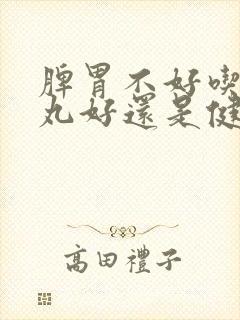 脾胃不好喫
丸好還是健
高田禮子